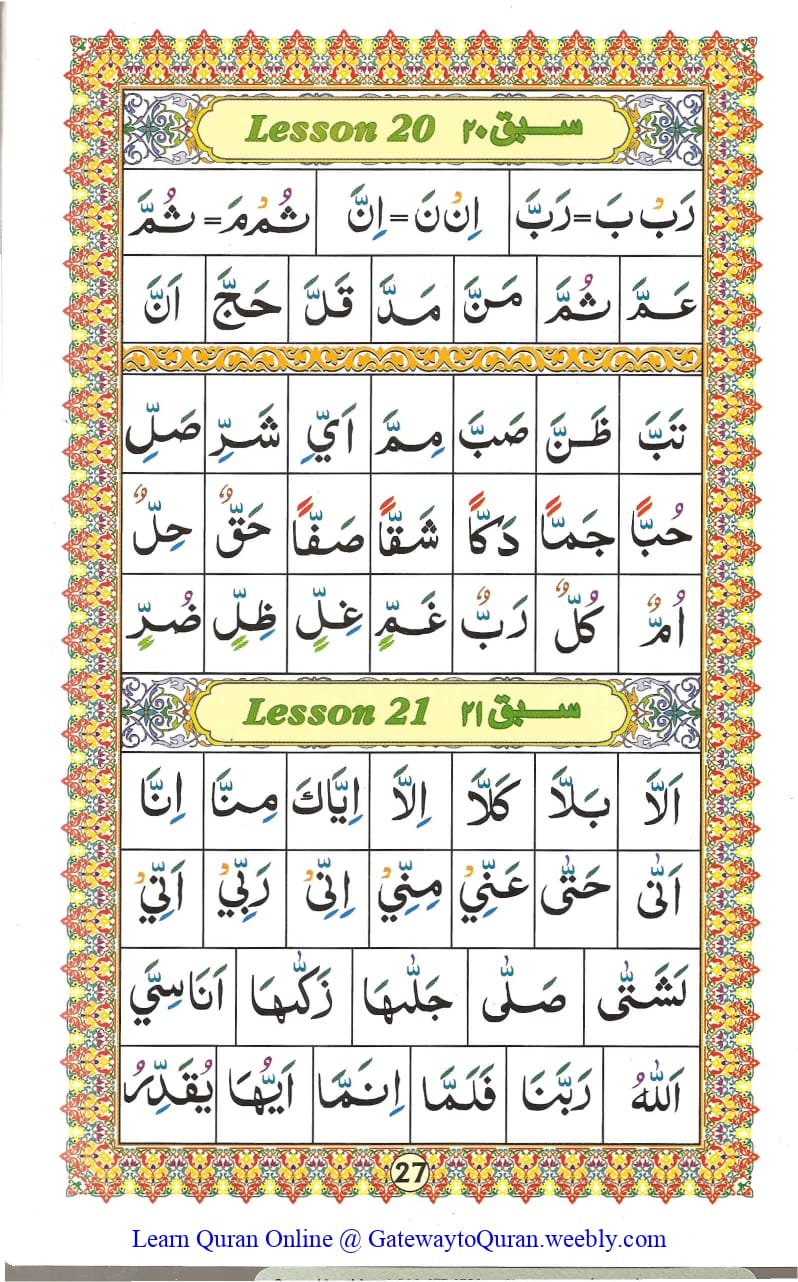 Lesson 20 سبق ۲۰
رَبْ بَ=رَبَّ اِنْ نَ=اِنَّ ثُمْ مَ=ثُمَّ
عَمَّ ثُمَّ مَنَّ مَدَّ قَلَّ حَجَّ اَنَّ
تَبَّ ظَنَّ صَبَّ مِمَّ اَيِّ شَرِّ صَلِّ
حُبًّا جَمًّا دَكًّا شَقًّا صَفًّا حَقٌّ حِلٌّ
اُمٌّ كُلٌّ رَبٌّ غَمٍّ غِلٍّ ظِلٍّ ضُرٍّ
Lesson 21 سبق ۲۱
اَلَّا بَلَّا كَلَّا اِلَّا اِيَّاكَ مِنَّا اِنَّا
اَنّٰى حَتّٰى عَنِّيْ مِنِّيْ اِنِّىْ رَبِّيْ اَنِّيْ
لَشَتّٰى صَلّٰى جَلّٰىهَا زَكّٰىهَا اَنَاسِيَّ
اَللّٰهُ رَبَّنَا فَلَمَّا اِنَّمَا اَيُّهَا يُقَدِّرُ
27
Learn Quran Online @ GatewaytoQuran.weebly.com